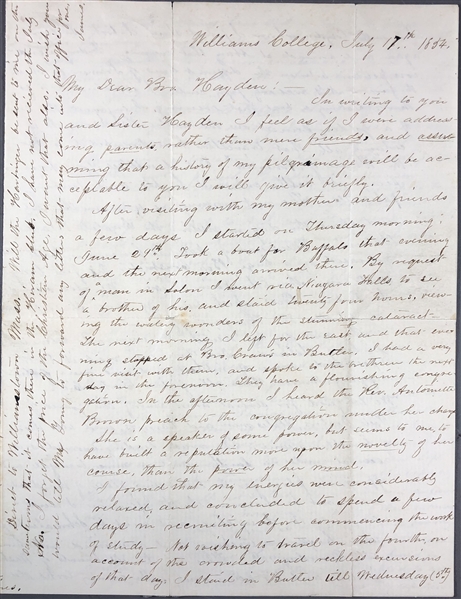 Williams College, July 17th 1854.
My Dear Bro. Hayden! —
In writing to you
and Sister Hayden I feel as if I were addres-
sing parents rather than mere friends, and assu-
ming that a history of my pilgrimage will be ac-
ceptable to you I will give it briefly.
After visiting with my mother and friends
a few days I started on Thursday morning
June 29th. Took a boat for Buffalo that evening
and the next morning arrived there. By request
of a man in Solon I went via Niagara Falls to see
a brother of his, and staid twenty four hours, view-
ing the watery wonders of the stunning cataract.
The next morning I left for the east and that eve-
ning stopped at Bro. Craw's in Butler. I had a very
fine visit with them, and spoke to the brethren the next
day in the forenoon. They have a flourishing congre-
gation. In the afternoon I heard the Rev. Antoinette
Brown preach to the congregation under her charge
She is a speaker of some power, but seems to me to
have built a reputation more upon the novelty of her
course, than the power of her mind.
I found that my energies were considerably
relaxed, and concluded to spend a few
days in recruiting before commencing the work
of study — Not wishing to travel on the fourth, on
account of the crowded and reckless excursions
of that day. I staid in Butler till Wednesday (5th)
Direct to Williamstown Mass. Will the Harbinger be sent to me
something that it comes there in the Hiram
I forgot the price of the Christian Age. I want that also. I wish you
would tell Mr. to forward any letters that may come into that office for
me. James.